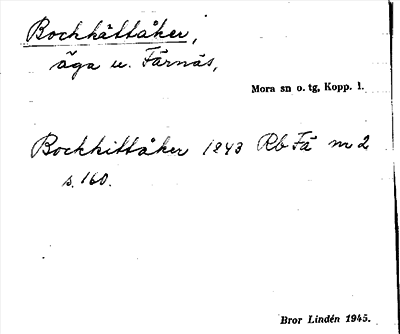 Bockhättåker,
äga u. Färnäs,
Mora sn o. tg, Kopp. l.
Bockhittåker 1843 Rb Fä nr 2
s. 160.
Bror Lindén 1945.